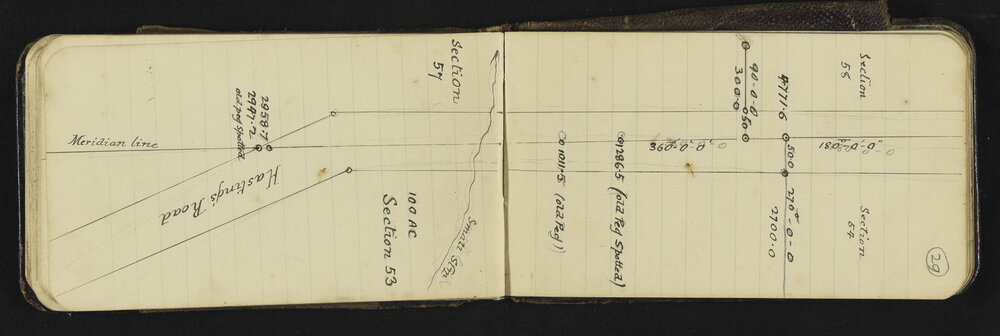 Meridian line
2958.7
2947.2
old Peg Spotted
Hastings Road
Section
57
100 AC
Section 53
Small Str
0 1011.5 (old Peg)
01286.5 (old Peg Spotted)
360-0-0
90-0-0
300.0
50
4771.6
500
270°-0-0
2700.0
180-0-0
Section
Section
54
29